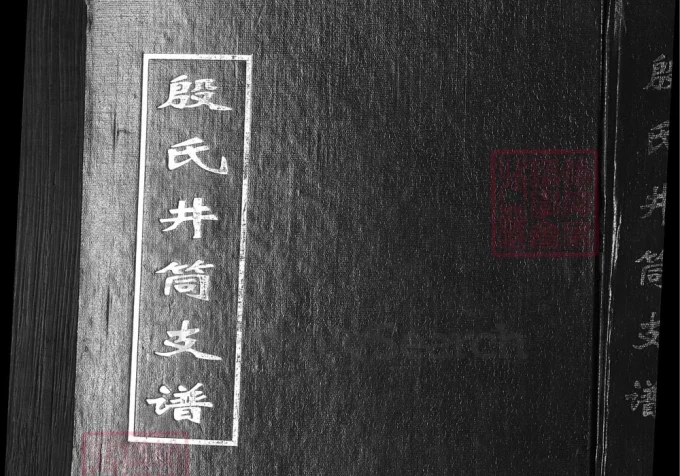 殷氏井筒支谱
殷氏井筒支谱